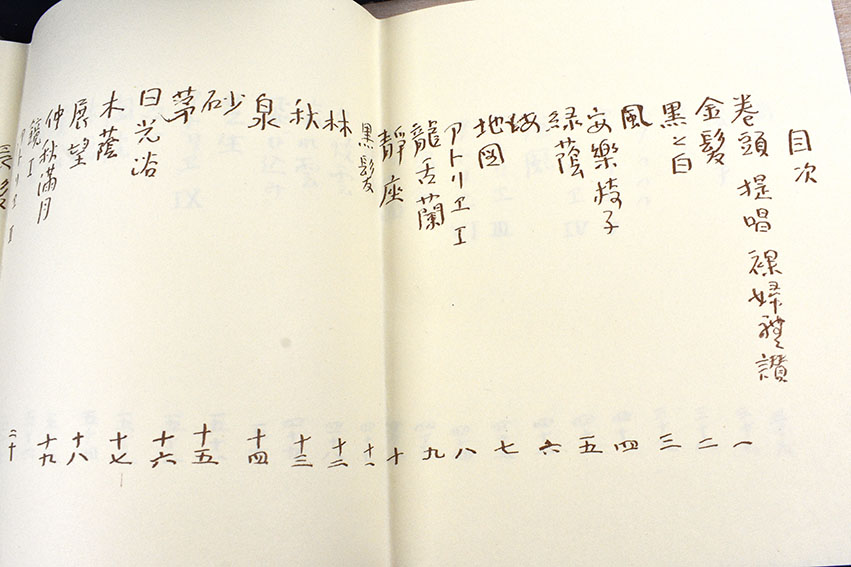 目次
巻頭 提唱 裸婦禮讃 一
金髪 二
黒と白 三
風 四
安樂椅子 五
緑蔭 六
地図 七
アトリヱ I 八
龍舌蘭 九
静座 十
黒髪 十一
林 十二
秋 十三
泉 十四
砂 十五
茅
日光浴 十六
木蔭 十七
展望 十八
仲秋満月 十九
鏡 I 二十